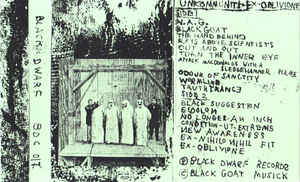 BLACK DWARF BDC 011
UNCOMMUNITY-EX-OBLIVIONE
SIDE 1
N.A.G.
BLACK GOAT
THE HAND BEHIND
RATS ABOVE SCIENTISTS
OUT AND OUT
TURN THE INNER EYE
ATTACK MACDONALDS WITH A
SLEDGEHAMMER PLEASE
ODOUR OF SANCTITY
WORMLIKE
TRUTHTRANCE
SIDE 2
BLACK SUGGESTION
EIDOLON
NO LONGER AN INCH
CONDITION-UT-EXTREMS
NEW AWARENESS
EX-NIHILO NIHIL FIT
EX-OBLIVIONE
BLACK DWARF RECORDS
BLACK GOAT MUSICK